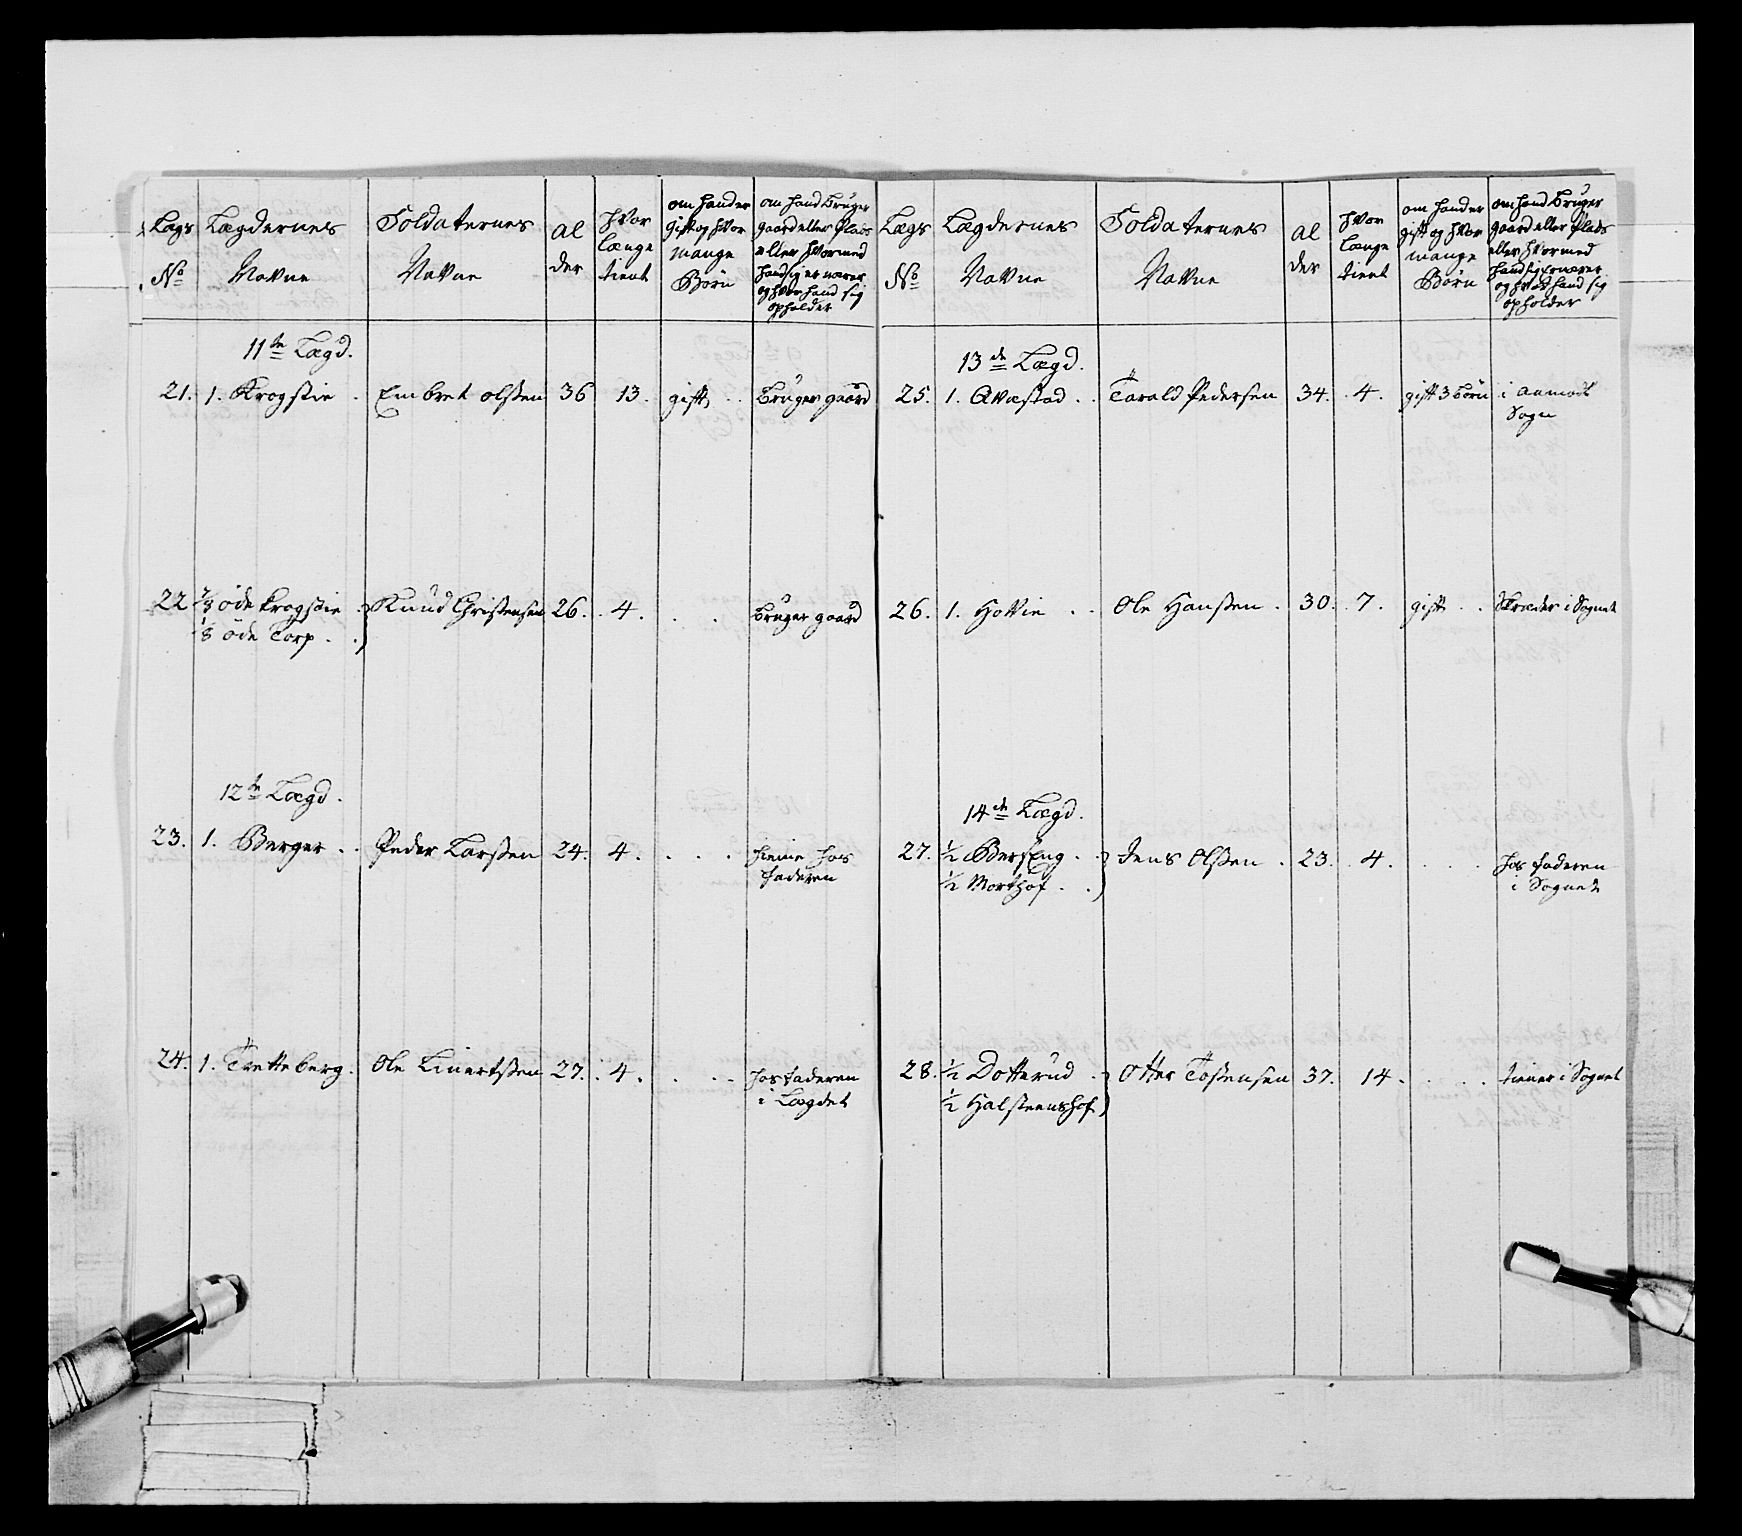 Lægs Lægdernes Soldaternes al hvor om hand er om hand bruger
No Navne Navne der længe gift og hvor gaard eller plads
tient mange eller hvormed
Börn hand sig ernærer
og hvor hand sig
opholder
11te Lægd.
21. 1. Krogstie . Embret Olssen 36 13. gift, . . bruger gaard
22 öde Krogstie . Knud Christensen 26. . 4. . . bruger gaard
1/8 öde Torp . .
12te Lægd.
23. 1. Berger . . Peder Larssen 24. 4. . . . hieme hos
faderen
24. 1. Tretteberg. Ole Linertssen 27. . 4. . . . hos faderen
i Lægdet
Lægs Lægdernes Soldaternes al hvor om hand er om hand bruger
No Navne Navne der længe gift og hvor gaard eller plads
tient mange eller hvormed
Börn hand sig ernærer
og hvor hand sig
opholder
13de Lægd.
25. 1. Qvæstad . . Tarald Pedersen 34. . 4. gift 3 börn i Aamodt
Sogn
26. 1. Hovie . . Ole Hanssen . 30. . 7. gift . . Skræder i Sognet
14de Lægd.
27. 1/2 Berseng . . Jens Olssen . 23. . 4. . . . hos faderen
1/2 Morthof . . i Sognet
28. 1/2 Dotterud . Otter Tostensen 37. 14. . . . tiener i Sognet
1/2 Halsteenshof